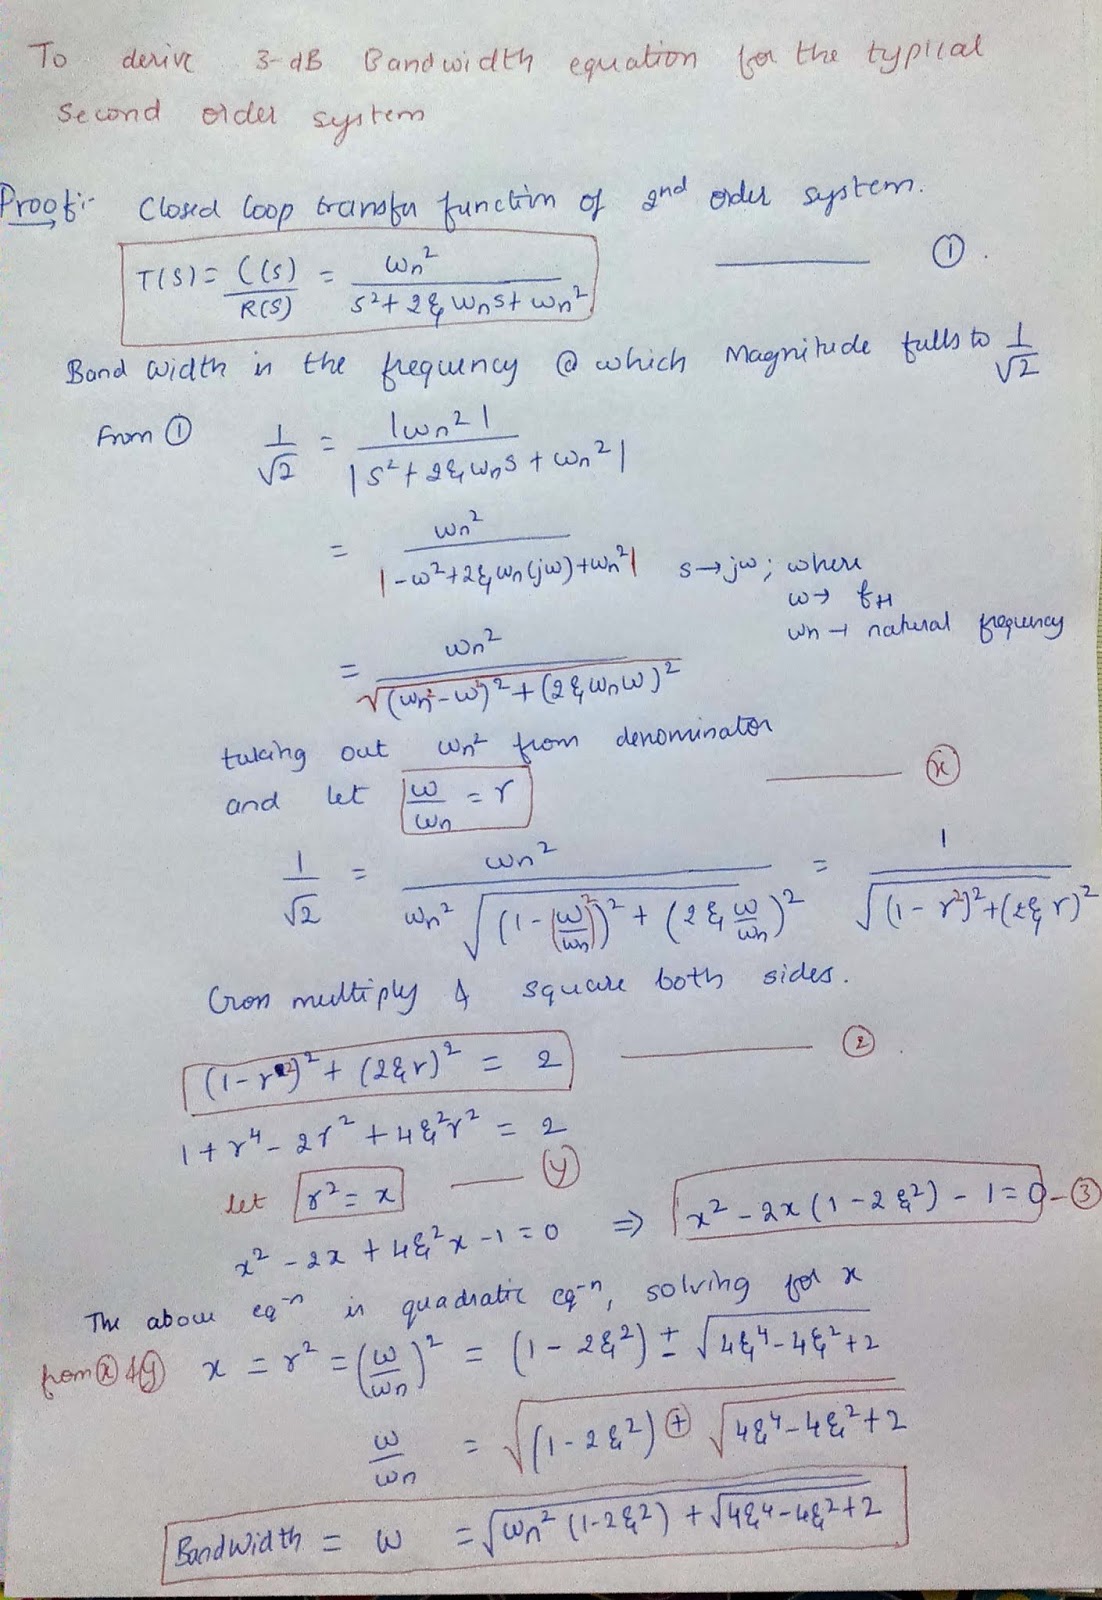 To derive 3-dB Bandwidth equation for the typical
second order system
Proof:- Closed loop transfer function of 2nd order system.
T(S) = C(S)/R(S) = ωn²/(s²+2ξωns+ωn²) ——— ①.
Band width is the frequency @ which Magnitude falls to 1/√2
From ① 1/√2 = |ωn²|/|s²+2ξωns+ωn²|
= ωn²/|-ω²+2ξωn(jω)+ωn²| s→jω; where
ω→ fH
ωn→ natural frequency
= ωn²/√((ωn²-ω²)²+(2ξωnω)²)
taking out ωn² from denominator
and let ω/ωn = r ——— ⓧ
1/√2 = ωn²/(ωn²√((1-(ω/ωn)²)²+(2ξω/ωn)²)) = 1/√((1-r²)²+(2ξr)²)
Cross multiply & square both sides.
(1-r²)²+(2ξr)² = 2 ——— ②.
1+r⁴-2r²+4ξ²r² = 2
let r² = x ——— ⓨ
x²-2x+4ξ²x-1=0 ⇒ x²-2x(1-2ξ²)-1=0 - ③
The above eq-n is quadratic eq-n, solving for x
from ⓧ & ⓨ x = r² = (ω/ωn)² = (1-2ξ²) ± √(4ξ⁴-4ξ²+2)
ω/ωn = √((1-2ξ²) ⊕ √(4ξ⁴-4ξ²+2))
Bandwidth = ω = √(ωn²(1-2ξ²)+√(4ξ⁴-4ξ²+2))